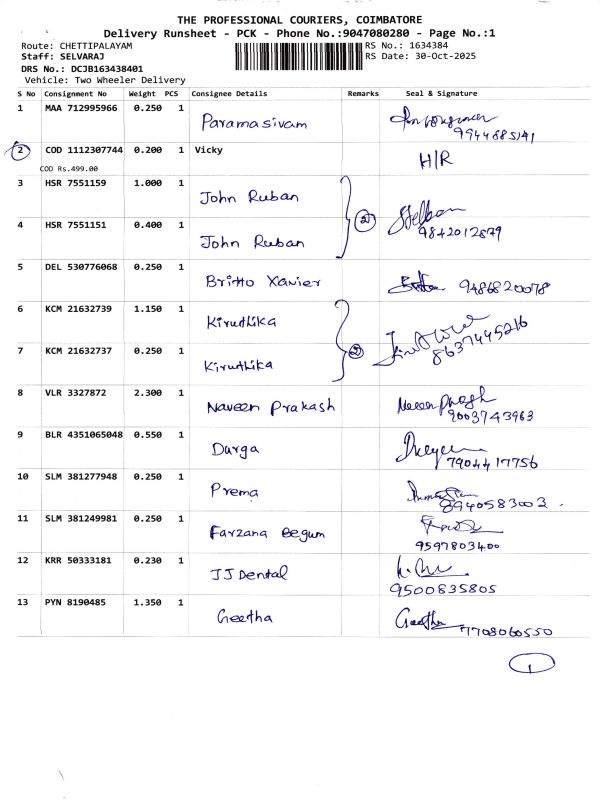 THE PROFESSIONAL COURIERS, COIMBATORE
Delivery Runsheet - PCK - Phone No.:9047080280 - Page No.:1
Route: CHETTIPALAYAM RS No.: 1634384
Staff: SELVARAJ RS Date: 30-Oct-2025
DRS No.: DCJB163438401
Vehicle: Two Wheeler Delivery
S No Consignment No Weight PCS Consignee Details Remarks Seal & Signature
1 MAA 712995966 0.250 1 Paramasivam
9944885141
2 COD 1112307744 0.200 1 Vicky H/R
COD Rs.499.00
3 HSR 7551159 1.000 1 John Ruban
4 HSR 7551151 0.400 1 John Ruban
9842012879
5 DEL 530776068 0.250 1 Britto Xavier 9486820078
6 KCM 21632739 1.150 1 Kiruthika
7 KCM 21632737 0.250 1 Kiruthika
8637445216
8 VLR 3327872 2.300 1 Naveen Prakash
9003743963
9 BLR 4351065048 0.550 1 Durga
7904417756
10 SLM 381277948 0.250 1 Prema
8940583003
11 SLM 381249981 0.250 1 Farzana Begum
9597803400
12 KRR 50333181 0.230 1 JJ Dental
9500835805
13 PYN 8190485 1.350 1 Geetha Geetha 7708060550
1